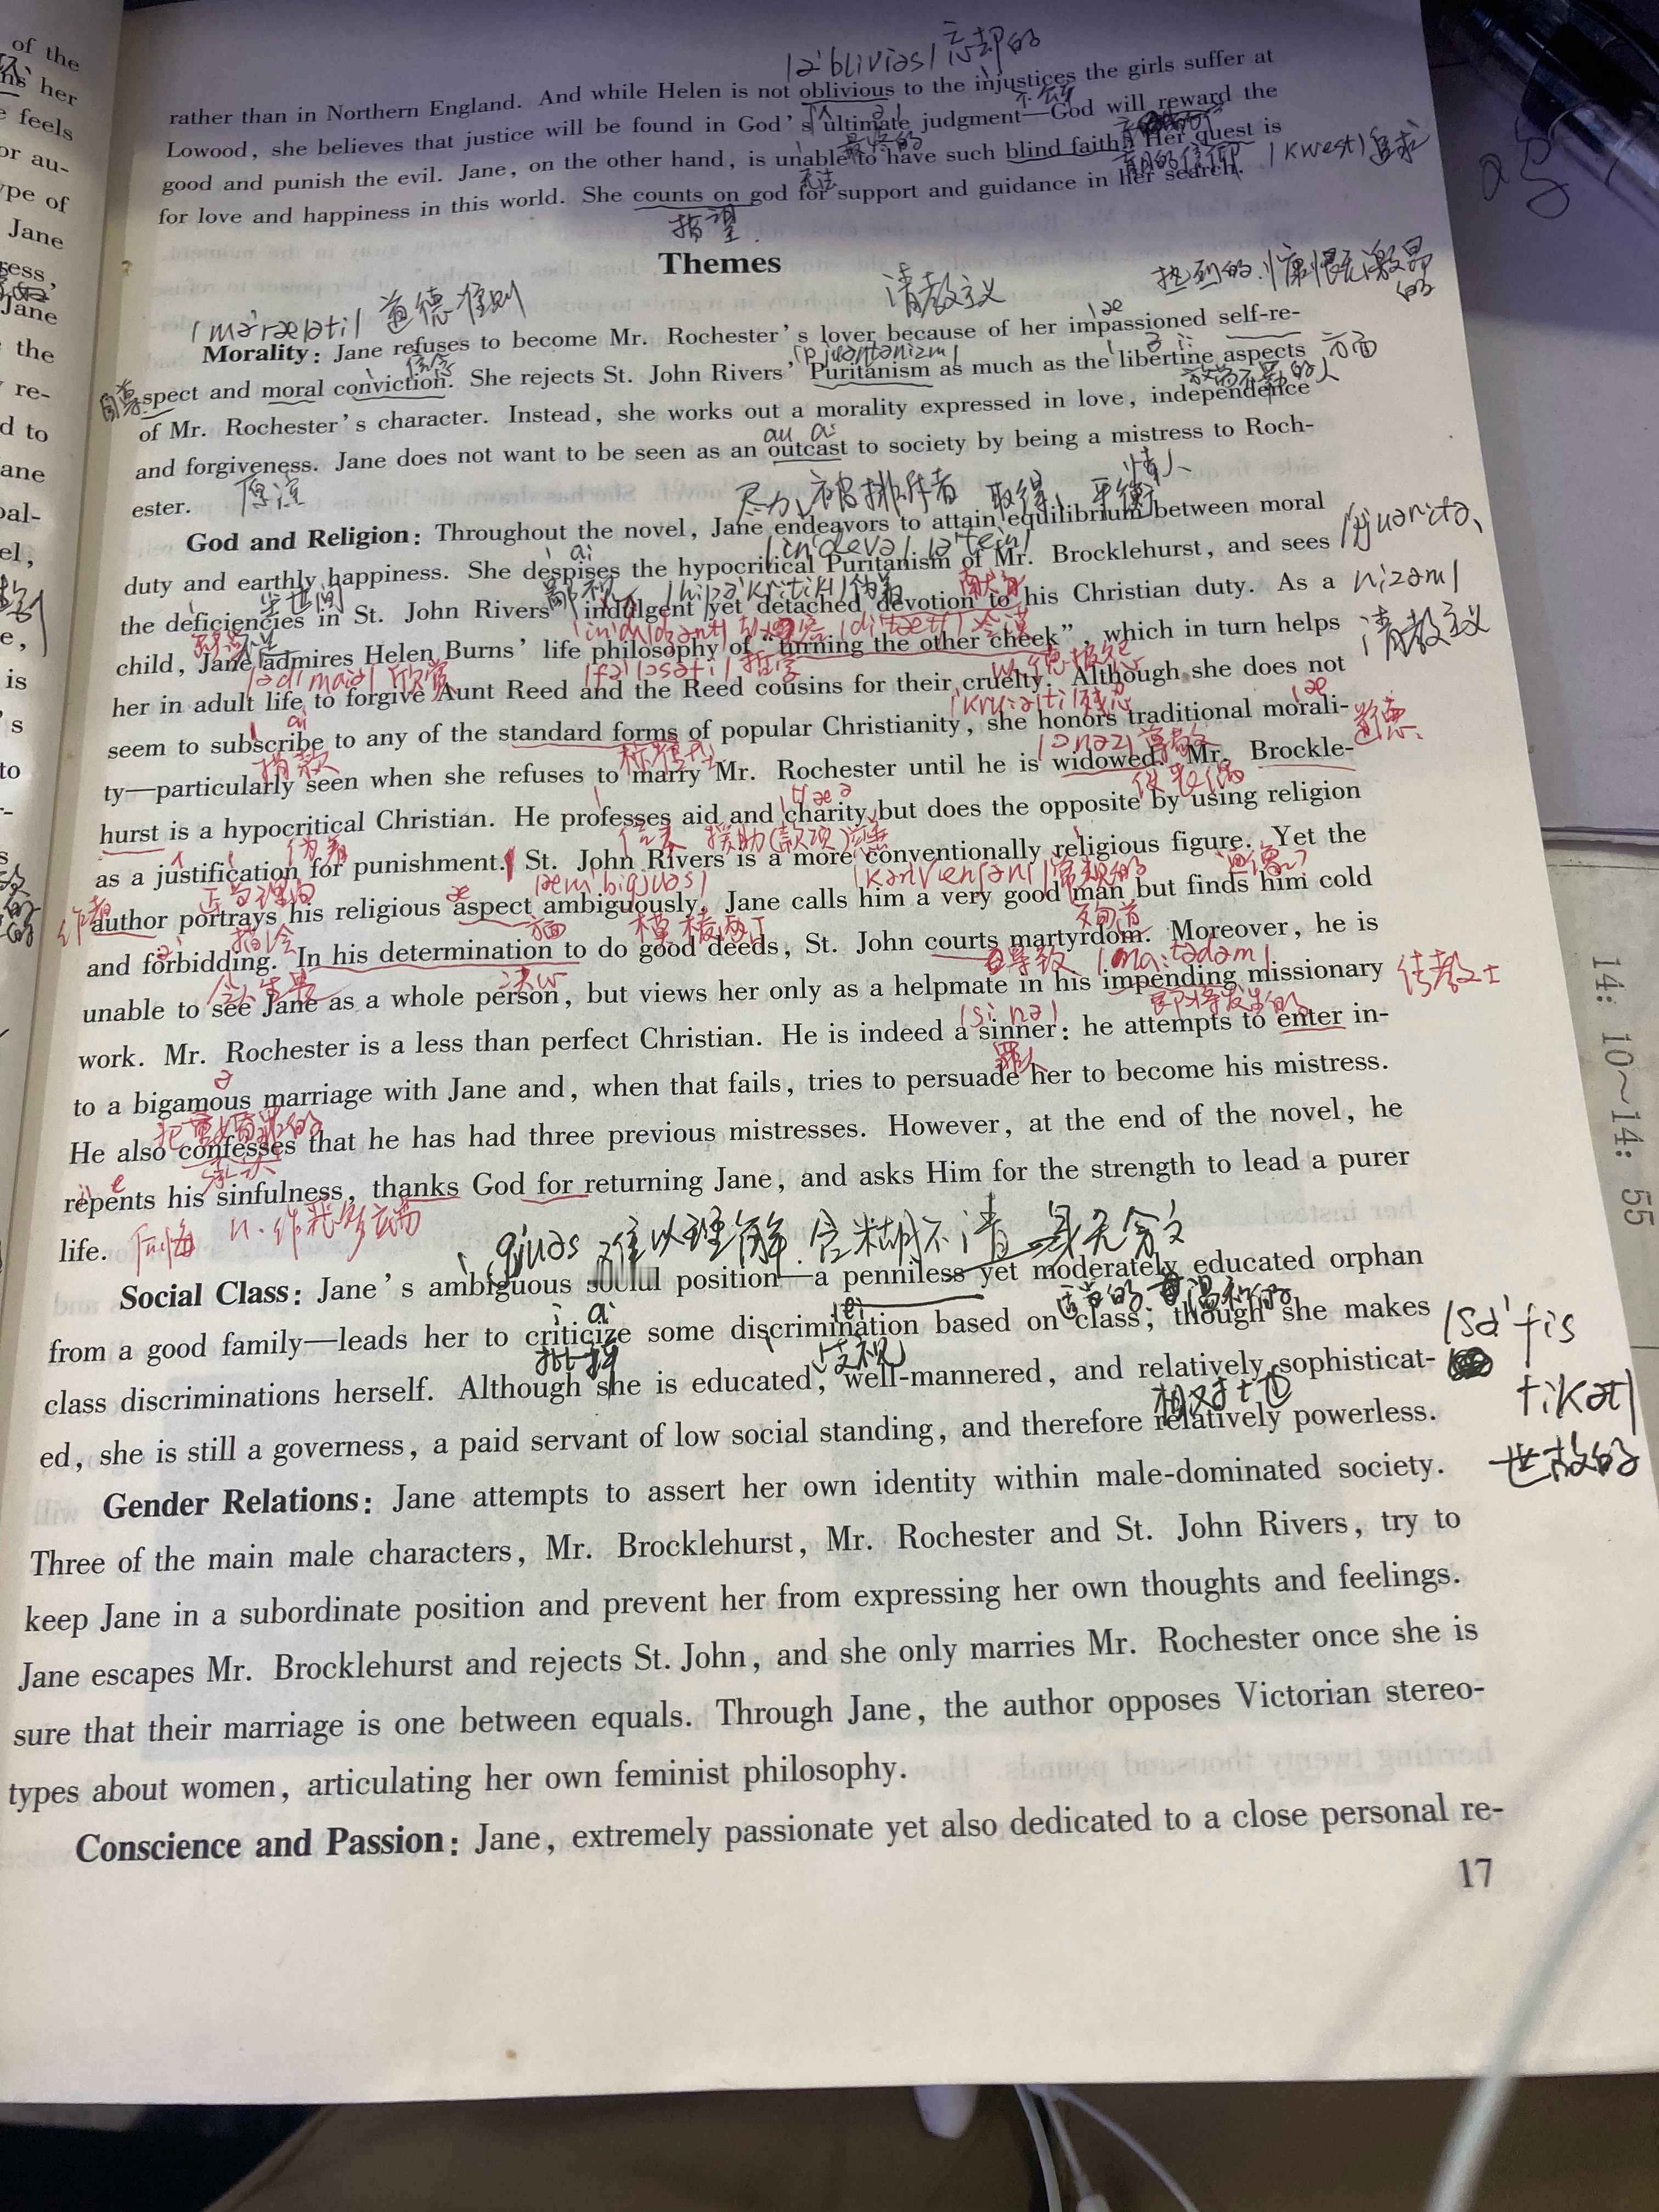 of the
her
feels
or au-
ype of
Jane
ress,
Jane
the
re-
d to
ane
pal-
el,
e,
is
's
to
/ə'bliviəs/ 忘却的
rather than in Northern England. And while Helen is not oblivious to the injustices the girls suffer at
Lowood, she believes that justice will be found in God's ultimate judgment—God will reward the
good and punish the evil. Jane, on the other hand, is unable to have such blind faith. Her quest is
/kwest/ 追求
无法
for love and happiness in this world. She counts on god for support and guidance in her search.
指望
Themes
道德准则
清教主义
热烈的.慷慨激昂的
Morality: Jane refuses to become Mr. Rochester's lover because of her impassioned self-re-
自尊
spect and moral conviction. She rejects St. John Rivers' Puritanism as much as the libertine aspects
方面
of Mr. Rochester's character. Instead, she works out a morality expressed in love, independence
and forgiveness. Jane does not want to be seen as an outcast to society by being a mistress to Roch-
ester.
原谅
尽力、被排斥者 取得、平衡
情人
God and Religion: Throughout the novel, Jane endeavors to attain equilibrium between moral
duty and earthly happiness. She despises the hypocritical Puritanism of Mr. Brocklehurst, and sees
the deficiencies in St. John Rivers' indulgent yet detached devotion to his Christian duty. As a
清教主义
child, Jane admires Helen Burns' life philosophy of "turning the other cheek", which in turn helps
欣赏
哲学
her in adult life to forgive Aunt Reed and the Reed cousins for their cruelty. Although she does not
seem to subscribe to any of the standard forms of popular Christianity, she honors traditional morali-
道德
捐款
尊敬
ty—particularly seen when she refuses to marry Mr. Rochester until he is widowed. Mr. Brockle-
hurst is a hypocritical Christian. He professes aid and charity but does the opposite by using religion
as a justification for punishment. St. John Rivers is a more conventionally religious figure. Yet the
正当理由
常规的
作者
author portrays his religious aspect ambiguously. Jane calls him a very good man but finds him cold
描绘
方面
模棱两可
and forbidding. In his determination to do good deeds, St. John courts martyrdom. Moreover, he is
决心
unable to see Jane as a whole person, but views her only as a helpmate in his impending missionary
传教士
即将发生的
work. Mr. Rochester is a less than perfect Christian. He is indeed a sinner: he attempts to enter in-
罪人
to a bigamous marriage with Jane and, when that fails, tries to persuade her to become his mistress.
He also confesses that he has had three previous mistresses. However, at the end of the novel, he
承认
repents his sinfulness, thanks God for returning Jane, and asks Him for the strength to lead a purer
life.
难以理解.含糊不清
身无分文
Social Class: Jane's ambiguous social position—a penniless yet moderately educated orphan
from a good family—leads her to criticize some discrimination based on class, though she makes
批评
歧视
class discriminations herself. Although she is educated, well-mannered, and relatively sophisticat-
/sə'fis
tikət/
世故的
相对地
ed, she is still a governess, a paid servant of low social standing, and therefore relatively powerless.
Gender Relations: Jane attempts to assert her own identity within male-dominated society.
Three of the main male characters, Mr. Brocklehurst, Mr. Rochester and St. John Rivers, try to
keep Jane in a subordinate position and prevent her from expressing her own thoughts and feelings.
Jane escapes Mr. Brocklehurst and rejects St. John, and she only marries Mr. Rochester once she is
sure that their marriage is one between equals. Through Jane, the author opposes Victorian stereo-
types about women, articulating her own feminist philosophy.
Conscience and Passion: Jane, extremely passionate yet also dedicated to a close personal re-
17
14: 10~14: 55